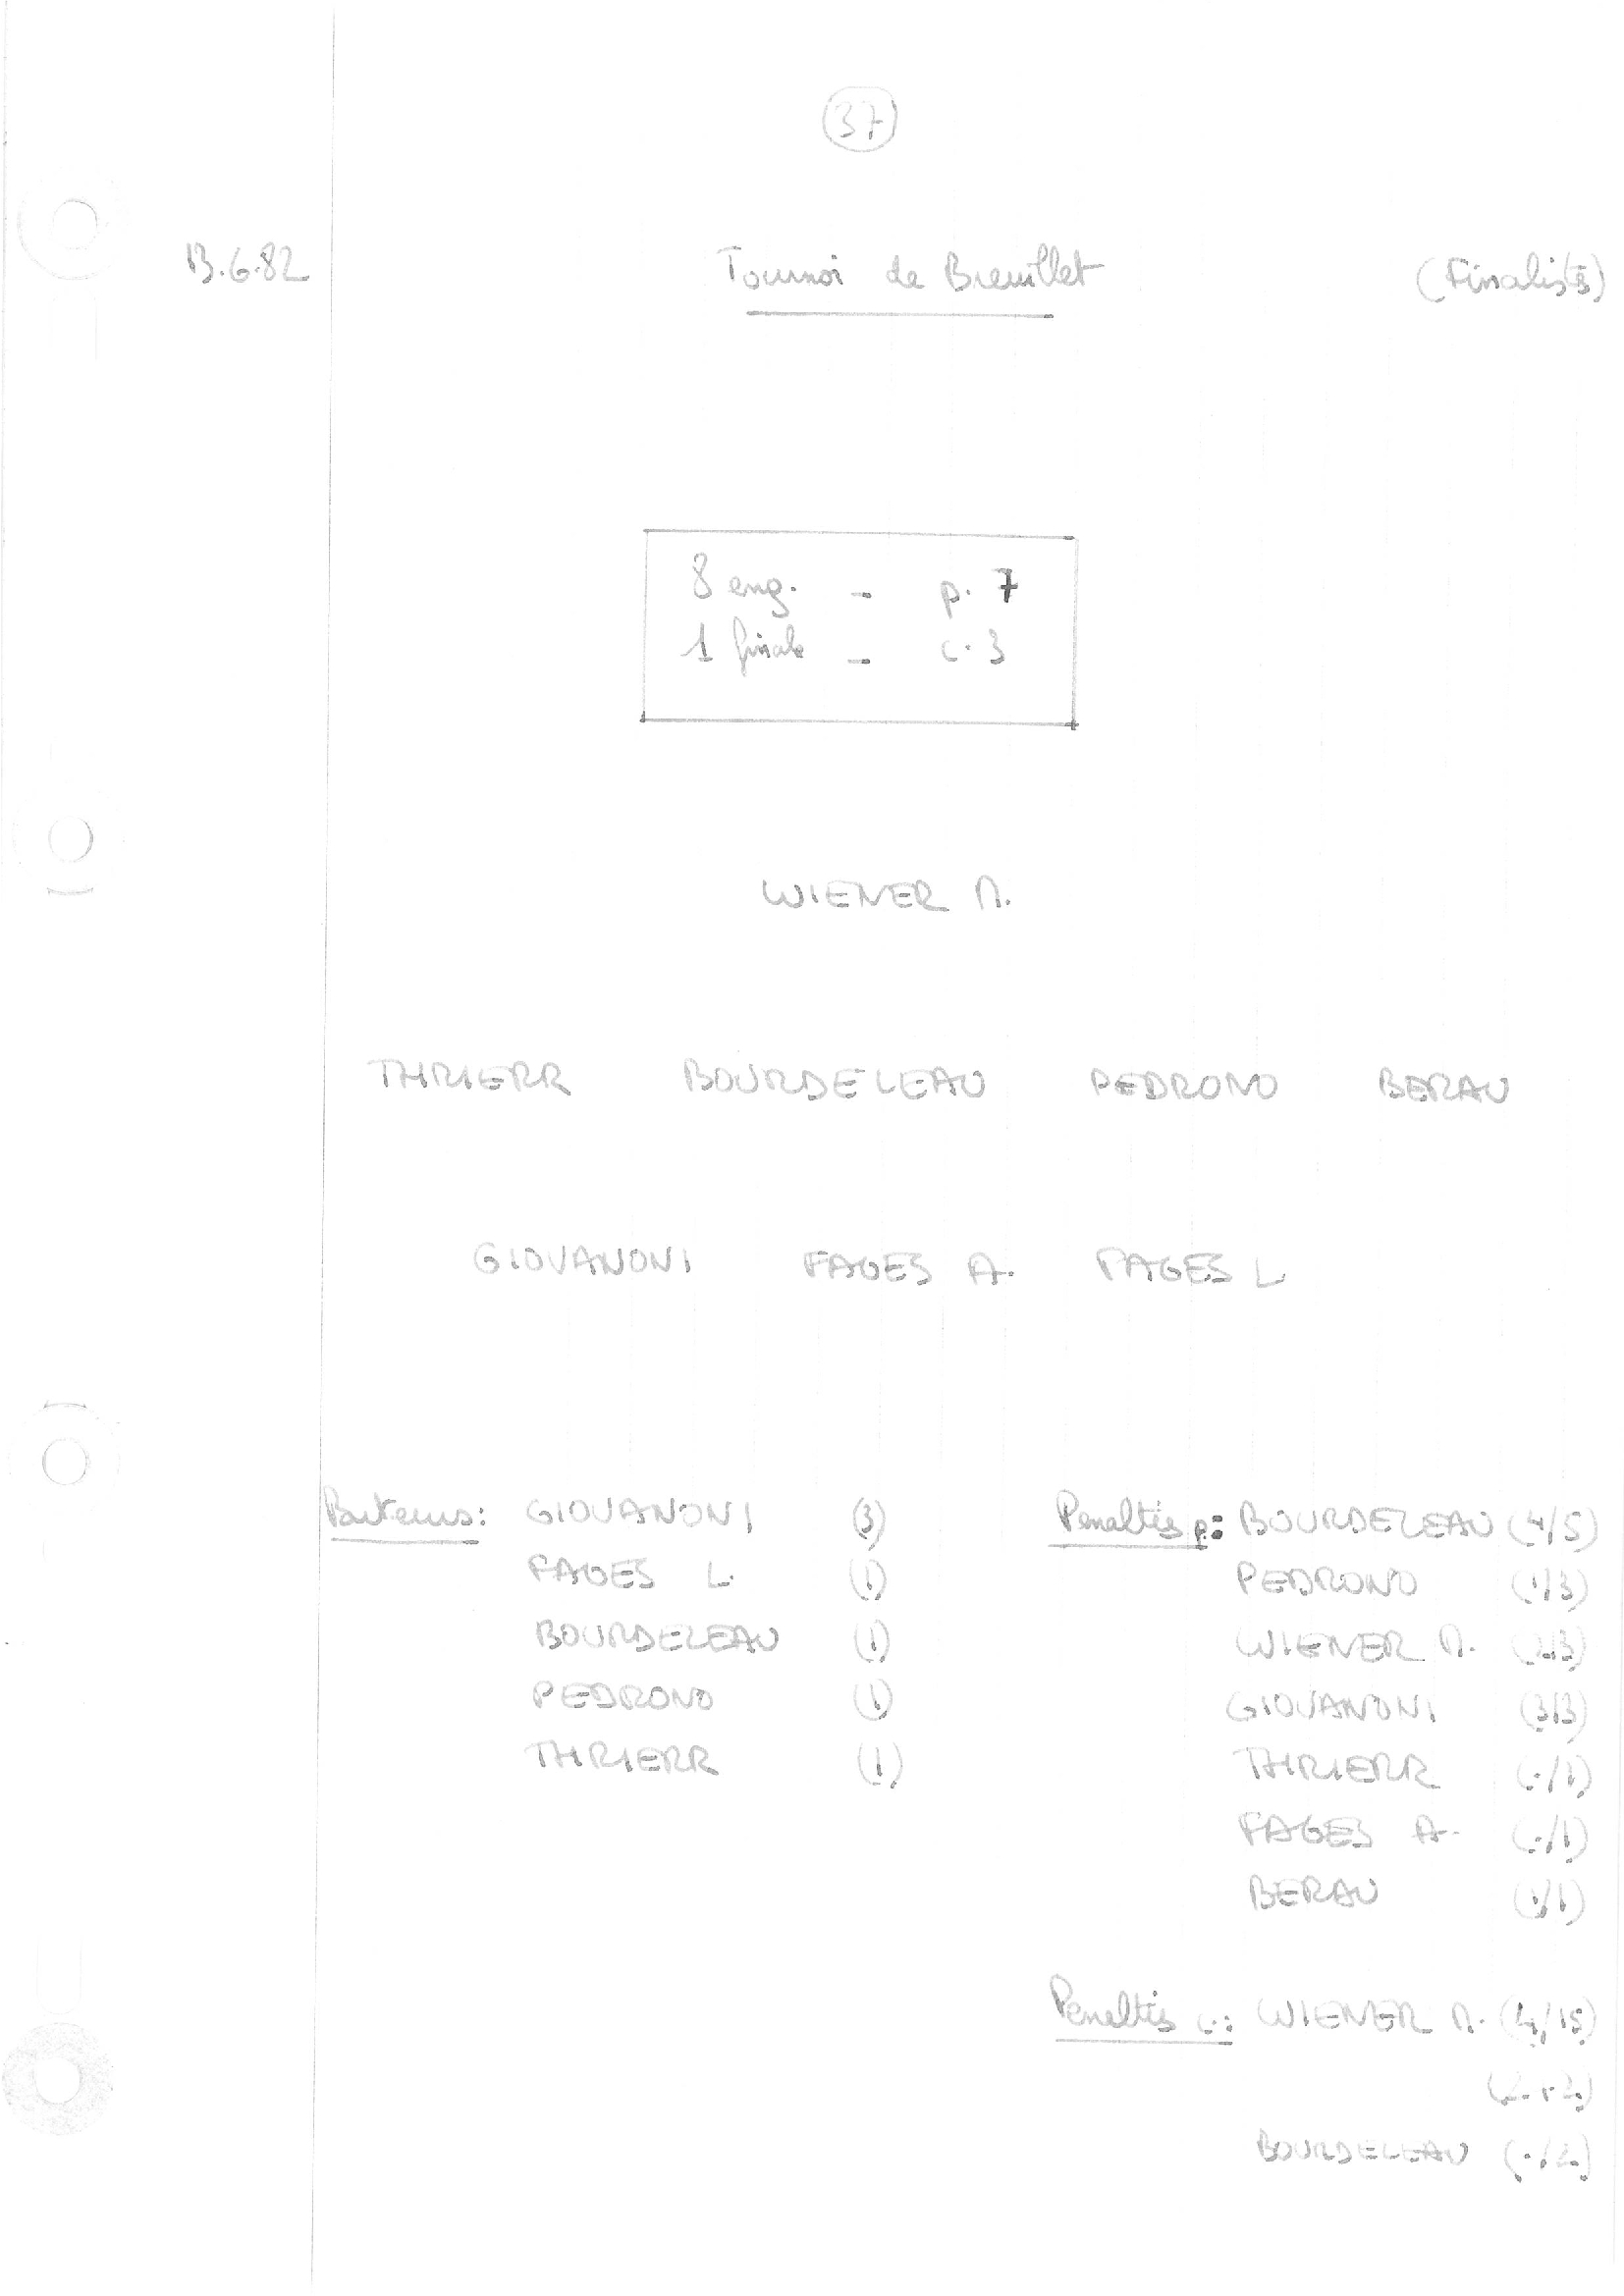 37
13.6.82 Tournoi de Breuillet (Finalistes)
8 eng. - p. 7
1 finale - c. 3
WIENER M.
THRIERR BOURDELEAU PEDRONO BERAU
GIOVANONI FAGES A. FAGES L
Buteurs: GIOVANONI (3) Penaltis p.: BOURDELEAU (4/5)
FAGES L. (1) PEDRONO (1/3)
BOURDELEAU (1) WIENER M.
PEDRONO (1) GIOVANONI (3/3)
THRIERR (1) THRIERR (./1)
FAGES A. (./1)
BERAU
Penaltis c.: WIENER M. (4/15)
BOURDELEAU (./2)